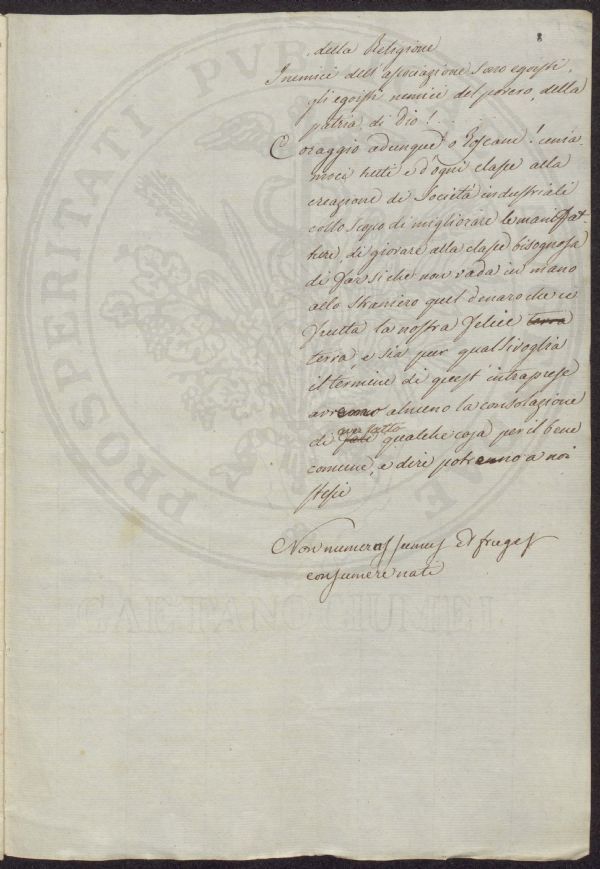 8
della Religione
I nemici dell' associazione sono egoisti,
gli egoisti nemici del povero, della
patria, di Dio!...
Coraggio adunque o Toscani! 
moci tutti e d'ogni classe alla
creazione di Società industriali
collo scopo di migliorare le manifat
ture, di giovare alla classe bisognosa
di far sì che non vada in mano
allo straniero quel denaro che ci
frutta la nostra felice terra
terra, e sia pur qualsivoglia
il termine di quest' intraprese
avremo almeno la consolazione
di aver fatto qualche cosa per il bene
comune, e dire potremo a noi
stessi
Non numeras sumus et fruges
consumere nati
PROSPERITATI PUB
GAETANO